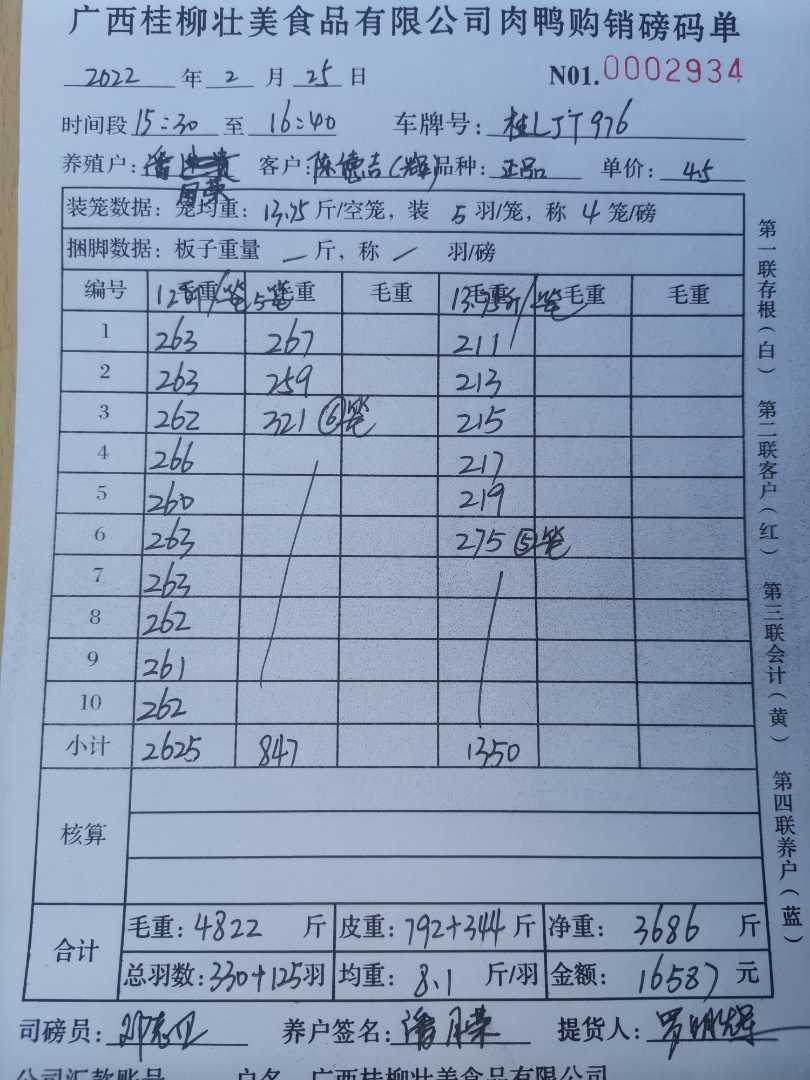 广西桂柳壮美食品有限公司肉鸭购销磅码单
2022 年 2 月 25 日 N01. 0002934
时间段 15:30 至 16:40 车牌号: 桂LJT976
养殖户: 潘月荣 客户: 陈德吉(辉) 品种: 正品 单价: 4.5
装笼数据: 笼均重: 13.75 斤/空笼, 装 5 羽/笼, 称 4 笼/磅
捆脚数据: 板子重量 一 斤, 称 一 羽/磅
编号 毛重 12斤/笼 毛重 5笼 毛重 毛重 13.75斤/笼 毛重 毛重
1 263 267 211
2 263 259 213
3 262 321 ⑥笼 215
4 266 217
5 260 219
6 263 275 ⑤笼
7 263
8 262
9 261
10 262
小计 2625 847 1350
核算
合计 毛重: 4822 斤 皮重: 792+344 斤 净重: 3686 斤
总羽数: 330+125 羽 均重: 8.1 斤/羽 金额: 16587 元
司磅员: 养户签名: 潘月荣 提货人: 罗明辉
公司汇款账号 户名 广西桂柳壮美食品有限公司
第一联存根(白) 第二联客户(红) 第三联会计(黄) 第四联养户(蓝)